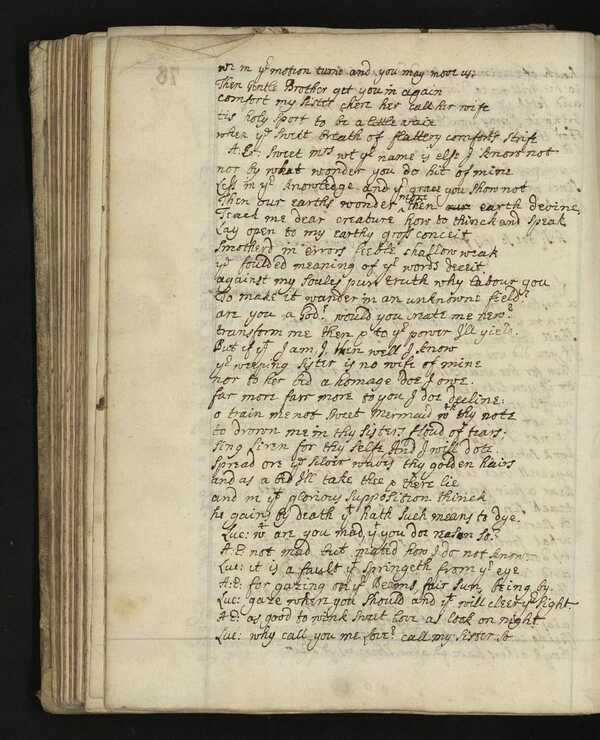 wee in yr motion turne and you may moue us:
Then gentle Brother get you in again
comfort my sister chere her call her wife
tis holy sport to be a little vaine
when ye sweet breath of flattery comforts strife
A:E: sweet mrs wt yr name is else I know not
nor by what wonder you do hit of mine
Less in yr knowledge and yr grace you show not
Then our earths wonder more then our earth devine,
Teach me dear creature how to thinck and speak
Lay open to my earthy gross conceit
smotherd in errors feeble shallow weak
ye foulded meaning of yr words deceit
against my soules pure truth why labour you
To make it wander in an unknowne field?
are you a God? would you create me new?
transform me then & to yr power I'll yield.
But if yt I am I, then well I know
yr weeping sister is no wife of mine
nor to her bed a homage doe I owe.
far more farr more to you I doe decline:
o train me not sweet mermaid wth thy note
to drown me in thy sisters floud of tears;
sing siren for thy selfe And I will dote
spread ore ye silver waves thy golden hairs
and as a bed I'll take thee & there lie
and in yt glorious supposition thinck
he gains by death yt hath such means to dye.
Luc: wt are you mad yt you doe reason so?
A:E: not mad but mated how I do not know.
Luc: it is a fault yt springeth from yr eye
A:E: for gazing on yr Beams, fair sun, being by.
Luc: gaze when you should and yt will cleer yr sight
A:E: as good to wink sweet love as look on night
Luc: why call you me Love? call my sister so